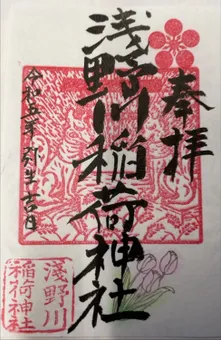 奉拝
浅野川稲荷神社
令和五年弥生吉日
浅野川
稲荷神社